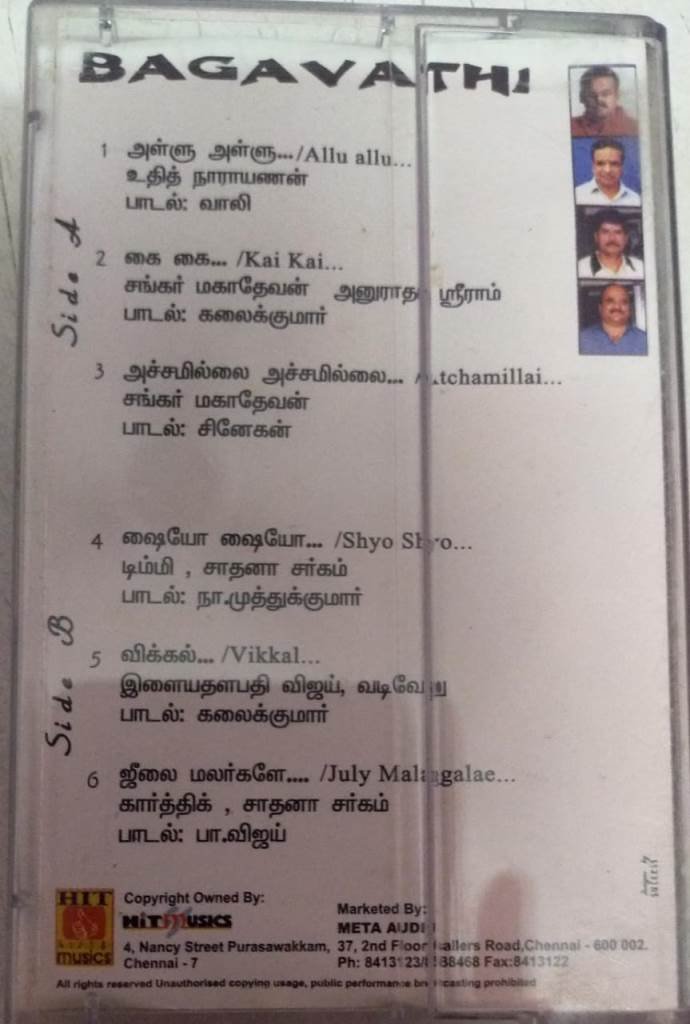 BAGAVATHI
Side A
1 அள்ளு அள்ளு.../Allu allu...
உதித் நாராயணன்
பாடல்: வாலி
2 கை கை... /Kai Kai...
சங்கர் மகாதேவன் அனுராதா ஸ்ரீராம்
பாடல்: கலைக்குமார்
3 அச்சமில்லை அச்சமில்லை... /Atchamillai...
சங்கர் மகாதேவன்
பாடல்: சினேகன்
Side B
4 ஷையோ ஷையோ... /Shyo Shyo...
டிம்மி , சாதனா சர்கம்
பாடல்: நா.முத்துக்குமார்
5 விக்கல்... /Vikkal...
இளையதளபதி விஜய், வடிவேலு
பாடல்: கலைக்குமார்
6 ஜீலை மலர்களே.... /July Malargalae...
கார்த்திக் , சாதனா சர்கம்
பாடல்: பா.விஜய்
HIT
musics
Copyright Owned By:
HIT MUSICS
4, Nancy Street Purasawakkam,
Chennai - 7
Marketed By:
META AUDIO
37, 2nd Floor Road,Chennai - 600 002.
Ph: Fax:8413122
All rights reserved Unauthorised copying usage, public performance broadcasting prohibited